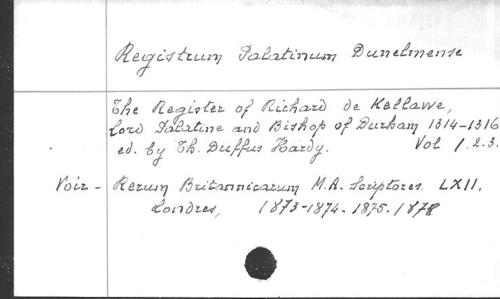 Registrum Palatinum Dunelmense
The Register of Richard de Kellawe,
Lord Palatine and Bishop of Durham 1314-1316
ed. by Th. Duffus Hardy. Vol 1.2.3.
Voir - Rerum Britannicarum M.A. Scriptores LXII.
Londres, 1873-1874-1875.1878